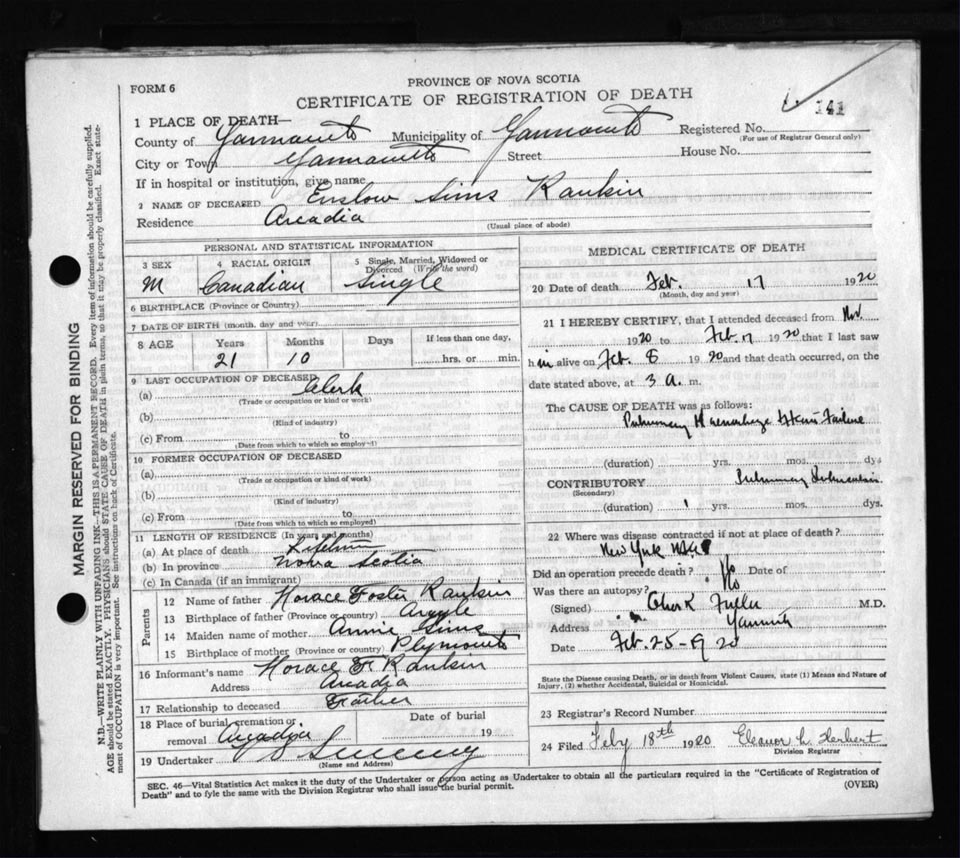 PROVINCE OF NOVA SCOTIA
FORM 6
CERTIFICATE OF REGISTRATION OF DEATH
141
1 PLACE OF DEATH—
County of Yarmouth Municipality of Yarmouth Registered No.
(For use of Registrar General only)
City or Town Yarmouth Street House No.
If in hospital or institution, give name
2 NAME OF DECEASED Enslow Sims Rankin
Residence Arcadia
(Usual place of abode)
PERSONAL AND STATISTICAL INFORMATION
3 SEX M
4 RACIAL ORIGIN Canadian
5 Single, Married, Widowed or Divorced (Write the word) Single
6 BIRTHPLACE (Province or Country)
7 DATE OF BIRTH (month, day and year)
8 AGE Years Months Days If less than one day,
21 10 hrs. or min.
9 LAST OCCUPATION OF DECEASED
(a) Clerk
(Trade or occupation or kind or work)
(b)
(Kind of industry)
(c) From to
(Date from which to which so employed)
10 FORMER OCCUPATION OF DECEASED
(a)
(Trade or occupation or kind of work)
(b)
(Kind of industry)
(c) From to
(Date from which to which so employed)
11 LENGTH OF RESIDENCE (In years and months)
(a) At place of death Lifetime
(b) In province Nova Scotia
(c) In Canada (if an immigrant)
Parents
12 Name of father Horace Foster Rankin
13 Birthplace of father (Province or country) Argyle
14 Maiden name of mother Annie Sims
15 Birthplace of mother (Province or country) Plymouth
16 Informant's name Horace F Rankin
Address Arcadia
17 Relationship to deceased Father
18 Place of burial, cremation or removal Arcadia Date of burial 19
19 Undertaker Sweeney
(Name and Address)
MEDICAL CERTIFICATE OF DEATH
20 Date of death Feb. 17 1920
(Month, day and year)
21 I HEREBY CERTIFY, that I attended deceased from Nov.
1920 to Feb. 17 1920 that I last saw
him alive on Feb. 8 1920 and that death occurred, on the
date stated above, at 3 a. m.
The CAUSE OF DEATH was as follows:
Pulmonary Haemorhage Heart Failure
(duration) yrs. mos. dys
CONTRIBUTORY Pulmonary Tuberculosis
(Secondary)
(duration) 1 yrs. mos. dys.
22 Where was disease contracted if not at place of death?
New York
Did an operation precede death? No Date of
Was there an autopsy? No
(Signed) Fuller M.D.
Address Yarmouth
Date Feb. 25-1920
State the Disease causing Death, or in death from Violent Causes, state (1) Means and Nature of
Injury, (2) whether Accidental, Suicidal or Homicidal.
23 Registrar's Record Number
24 Filed Feby 18th 1920 Eleanor L. Herbert
Division Registrar
SEC. 46—Vital Statistics Act makes it the duty of the Undertaker or person acting as Undertaker to obtain all the particulars required in the "Certificate of Registration of
Death" and to fyle the same with the Division Registrar who shall issue the burial permit.
(OVER)
MARGIN RESERVED FOR BINDING
N.B.—WRITE PLAINLY WITH UNFADING INK—THIS IS A PERMANENT RECORD. Every item of information should be carefully supplied.
AGE should be stated EXACTLY. PHYSICIANS should STATE CAUSE OF DEATH in plain terms, so that it may be properly classified. Exact state-
ment of OCCUPATION is very important. See instructions on back of Certificate.